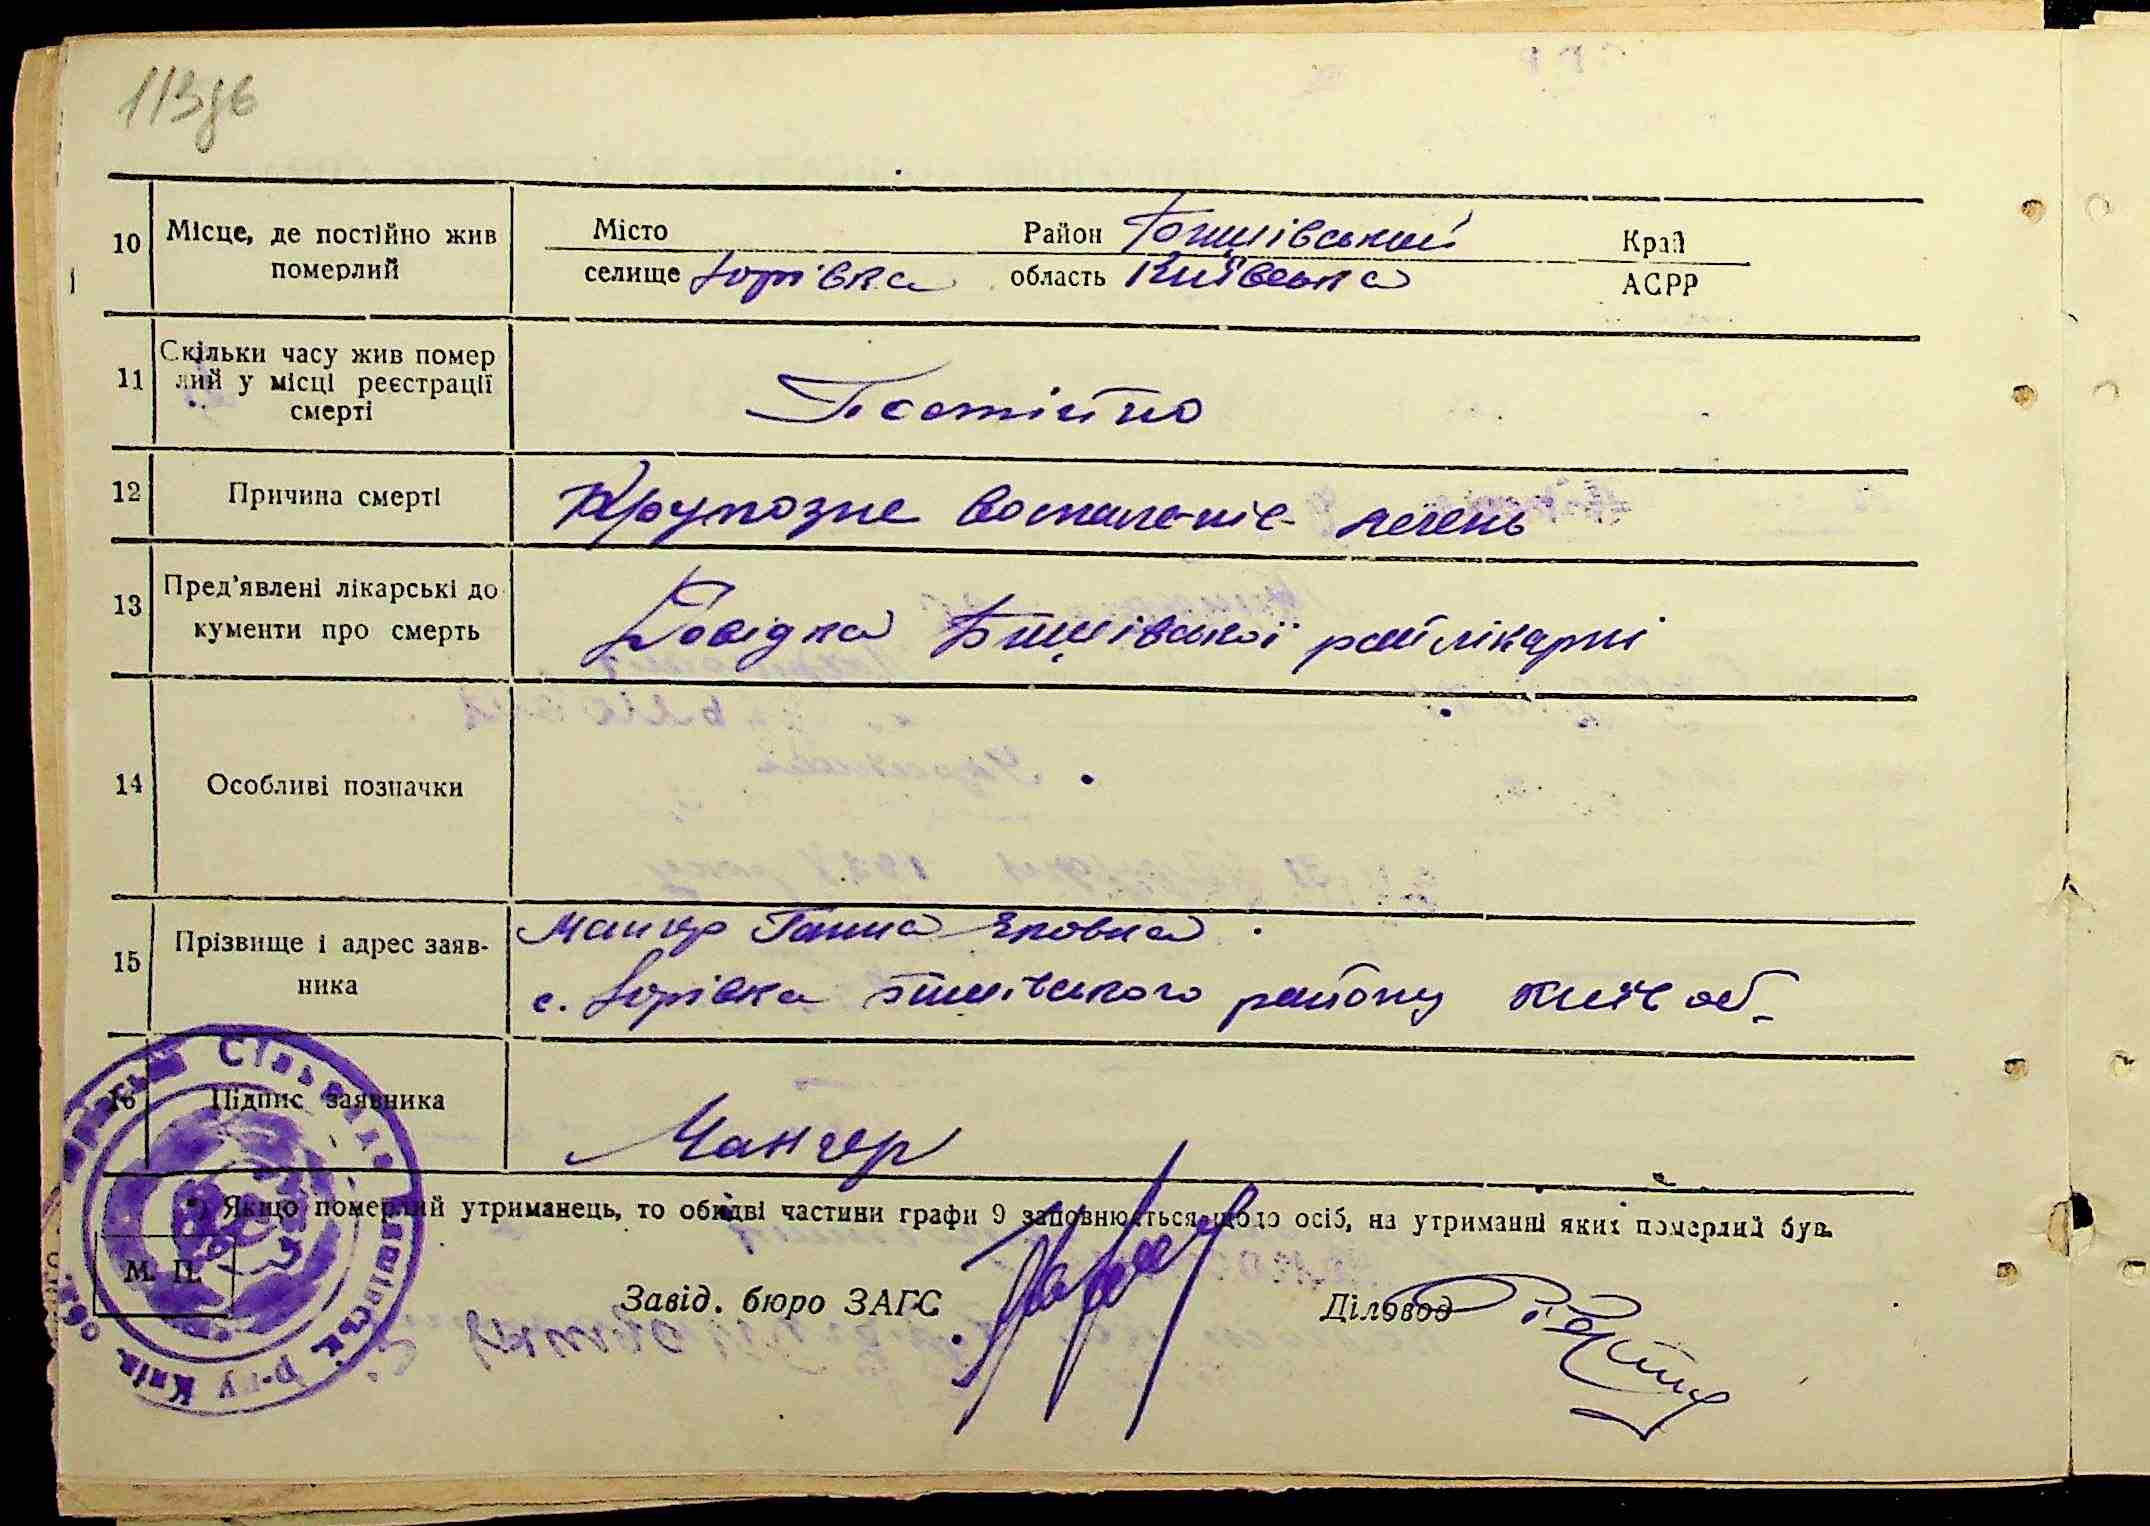 113зв
10 Місце, де постійно жив померлий
Місто Район Бишівський Край
селище Юрівка область Київська АСРР
11 Скільки часу жив помер
лий у місці реєстрації
смерті
Постійно
12 Причина смерті Крупозне воспаленіє легень
13 Пред'явлені лікарські до
кументи про смерть
Довідка Бишівської райлікарні
14 Особливі позначки
15 Прізвище і адрес заяв-
ника
Мангер Ганна
с. Юрівка Бишівського району Київ об.
16 Підпис заявника
Мангер
Якщо померлий утриманець, то обидві частини графи 9 заповнюються щодо осіб, на утриманні яких померлий був.
М. П.
Завід. бюро ЗАГС Діловод